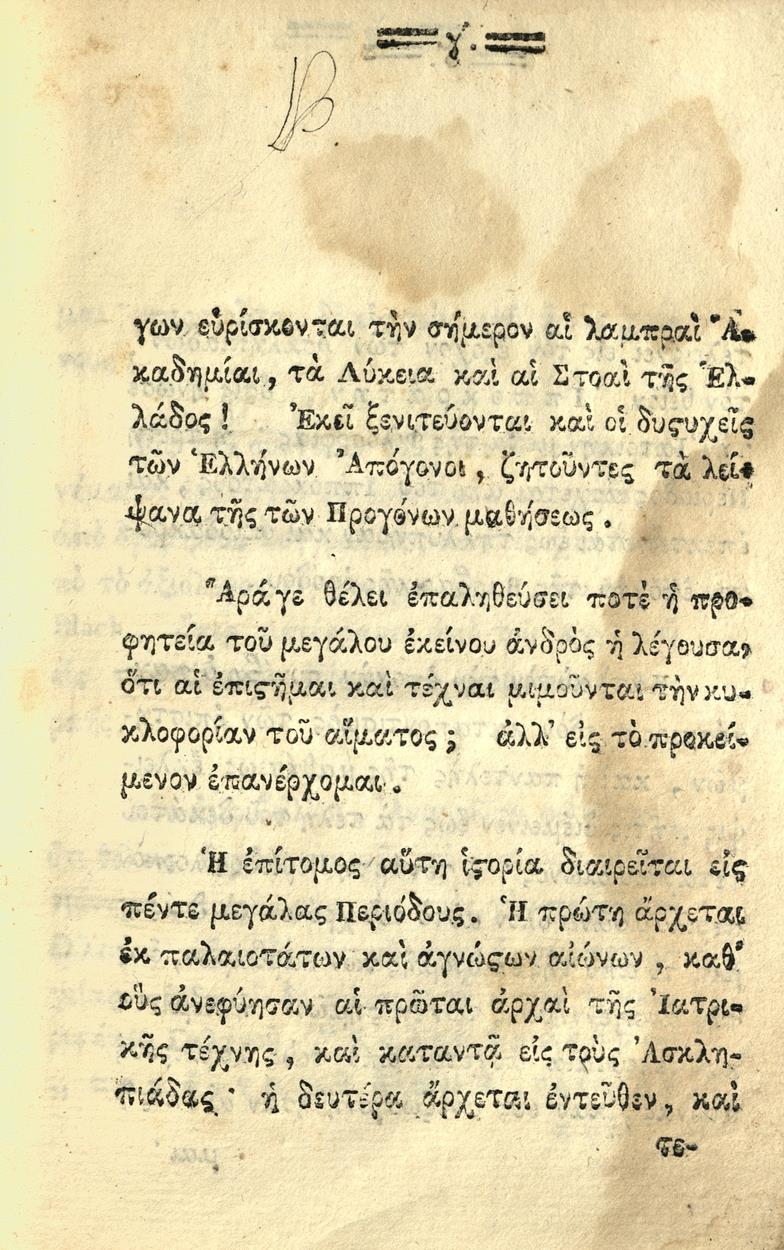 γ.
β
γων εὑρίσκονται τὴν σήμερον αἱ λαμπραὶ Ἀ-
καδημίαι, τὰ Λύκεια καὶ αἱ Στοαὶ τῆς Ἑλ-
λάδος! Ἐκεῖ ξενιτεύονται καὶ οἱ δυςυχεῖς
τῶν Ἑλλήνων Ἀπόγονοι, ζητοῦντες τὰ λεί-
ψανα τῆς τῶν Προγόνων μαθήσεως.
Ἄράγε θέλει ἐπαληθεύσει ποτὲ ἡ προ-
φητεία τοῦ μεγάλου ἐκείνου ἀνδρὸς ἡ λέγουσα,
ὅτι αἱ ἐπιςῆμαι καὶ τέχναι μιμοῦνται τὴν κυ-
κλοφορίαν τοῦ αἵματος; ἀλλ' εἰς τὸ προκεί-
μενον ἐπανέρχομαι.
Ἡ ἐπίτομος αὕτη ἱςορία διαιρεῖται εἰς
πέντε μεγάλας Περιόδους. Ἡ πρώτη ἄρχεται
ἐκ παλαιοτάτων καὶ ἀγνώςων αἰώνων, καθ'
οὓς ἀνεφύησαν αἱ πρῶται ἀρχαὶ τῆς Ἰατρι-
κῆς τέχνης, καὶ καταντᾷ εἰς τοὺς Ἀσκλη-
πιάδας · ἡ δευτέρα ἄρχεται ἐντεῦθεν, καὶ
τε-